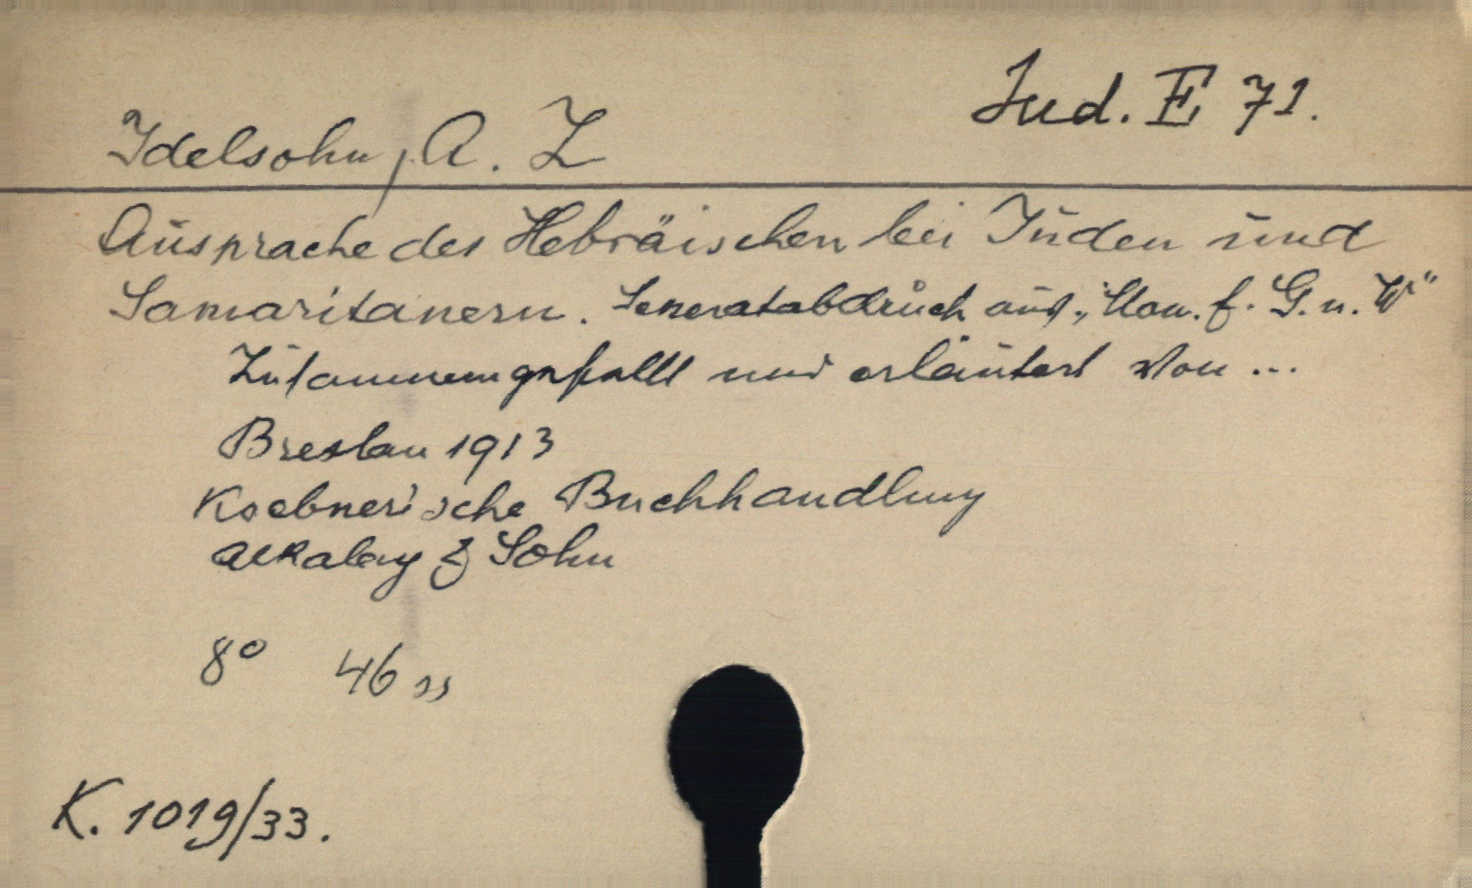 Jud. E 71.
Idelsohn, A. Z
Aussprache des Hebräischen bei Juden und
Samaritanern. Seperatabdruck aus „Mon. f. G. u. W“
Zusammengestellt und erläutert von ...
Breslau 1913
Koebneri sche Buchhandlung
Alkalay & Sohn
8° 46 ss
K. 1019/33.